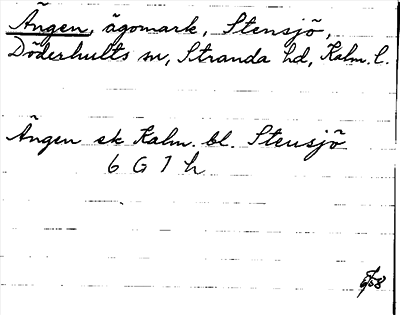 Ängen, ägomark, Stensjö,
Döderhults sn, Stranda hd, Kalm. l.
Ängen ek Kalm. bl. Stensjö
6 G 7 h